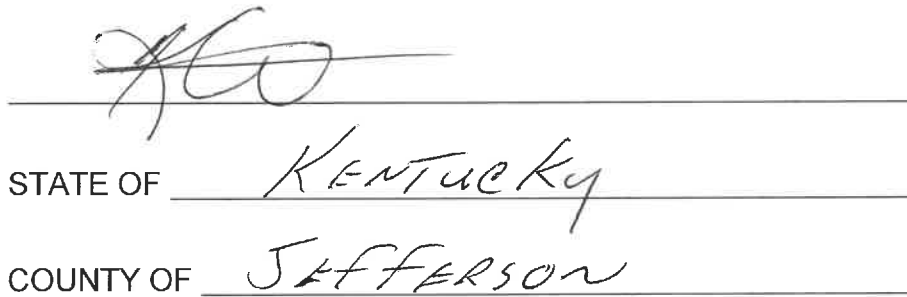 STATE OF Kentucky
COUNTY OF Jefferson